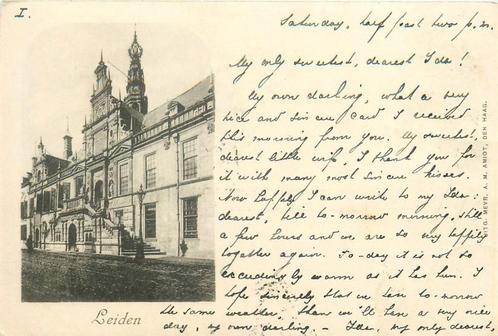 I.
Saturday, half past two p.m.
My only sweetest, dearest Ida!
My own darling, what a very
nice and sincere card I received
this morning from you. My sweetest,
dearest little wife, I thank you for
it with many most sincere kisses.
Now happily I can write to my Ida:
dearest, till to-morrow morning, still
a few hours and we are so very happily
together again. To-day it is not so
exceedingly warm as it has been. I
hope sincerely that we have to-morrow
the same weather, than we'll have a very nice
day, my own darling. – Ida, my only dearest,
Leiden
UITG. MEVR. A. M. AMIOT, DEN HAAG.